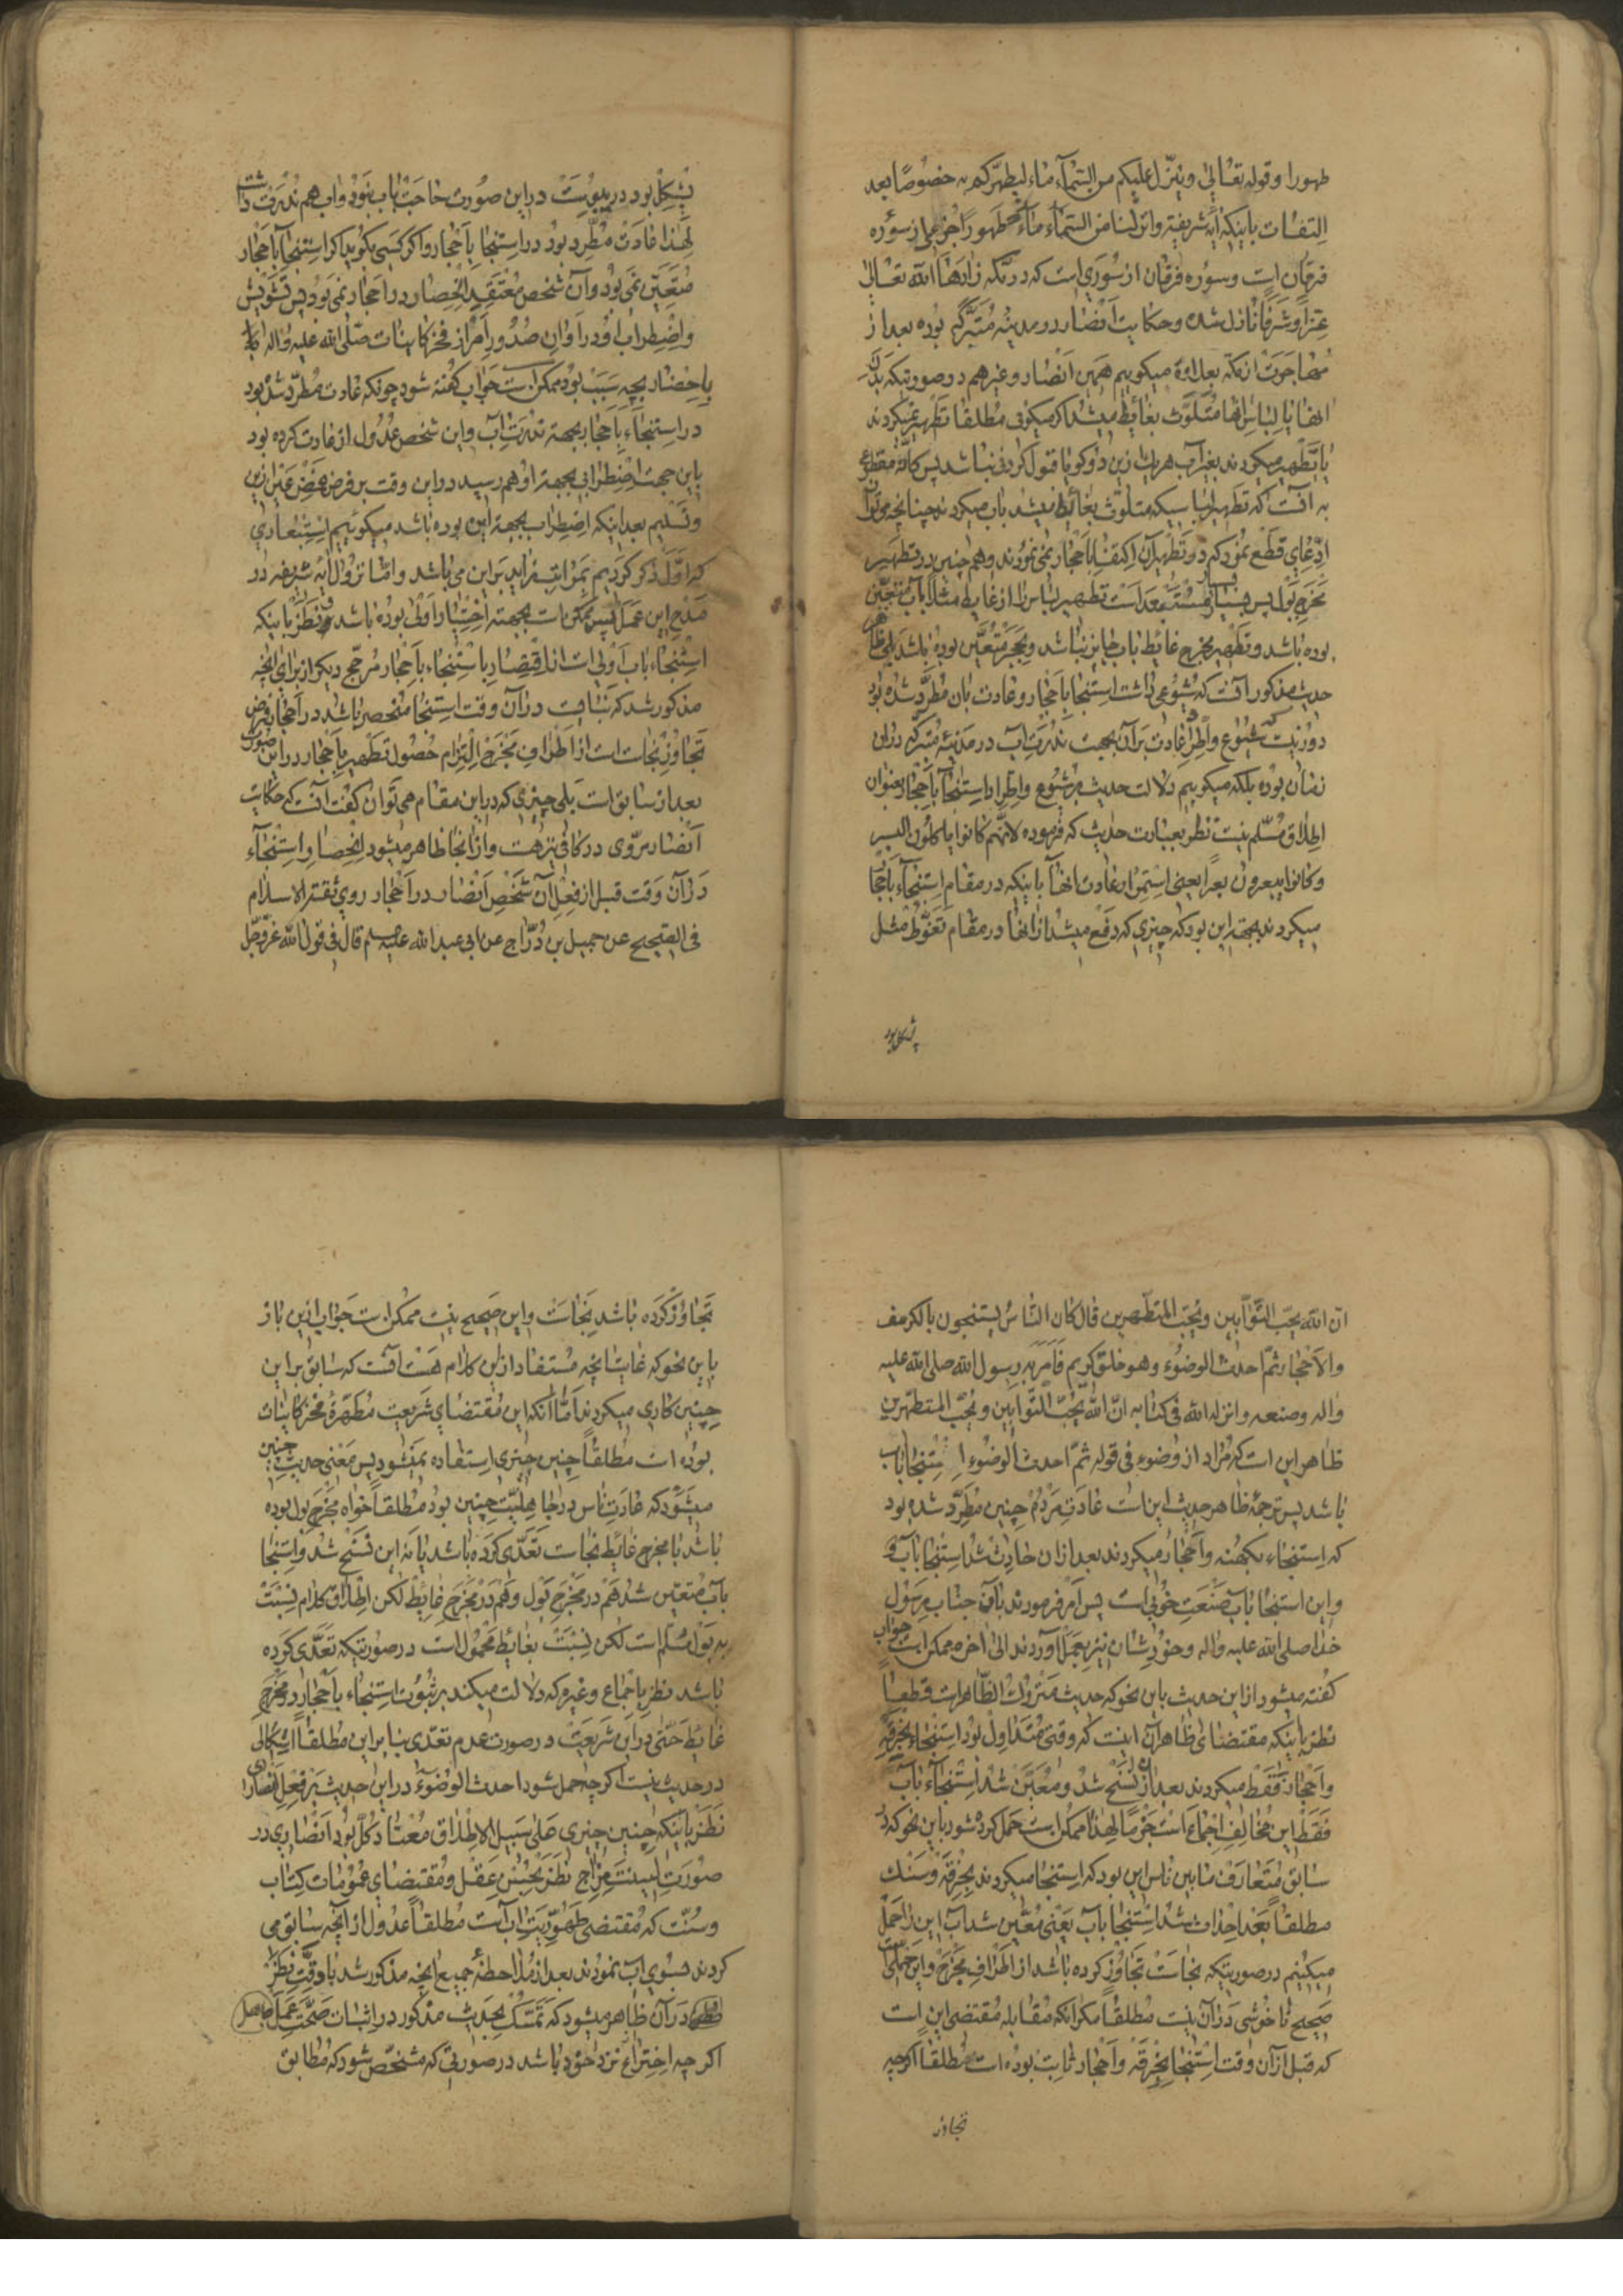 طهورا وقوله تعالی وینزل علیکم من السمآء ماء لیطهرکم به خصوصًا بعد
التفات باینکه آیهٔ شریفهٔ وانزلنا من السمآء مآء طهورًا جزئی از سوره
فرقان است وسوره فرقان از سوری است که در مکه زادها الله تعالی
عزًا وشرفًا نازل شده وحکایت انصار در مدینهٔ متبرکه بوده بعد از
مهاجرت از مکه بعد اوّهٔ میکوییم همین انصار وغیرهم در صورتیکه بدن
انها یا لباس انها متلوّث بغائط میشد اکر میکوئی مطلقا تطهیر نمیکردند
یا تطهیر میکردند بغیر آب هریک ازین دو کویا قبول کردنی نباشد پس کانّه مقطوع
به آنست که تطهیر لباسیکه متلوّث بغائط میشد باب میکردند چنانچه می توان
ادّعای قطع نمود که در تطهیر آن اکتفا باحجار نمی نمودند وهم چنین در تطهیر
مخرج بول پس بسیار مستبعد است تطهیر لباس را از غایط مثلًا باب متعیّن
بوده باشد وتطهیر مخرج غائط باب جایز نباشد وبحجر متعیّن بوده باشد بلی ظاهر
حدیث مذکور آنست که شیوعی داشت استنجا باحجار وعادت بان مطّرد شده بود
دور نیست که شیوع واطراد عادت بر آن بجهت ندرت آب در مدینهٔ متبرکه در آن
زمان بوده بلکه میکوییم دلالت حدیث بر شیوع واطراد استنجا باحجار بعنوان
اطلاق مسلّم نیست نظر بعبارت حدیث که فرموده لانّهم کانوا یاکلون البسر
وکانوا یبعرون بعرًا یعنی استمرار عادت انها باینکه در مقام استنجآء باحجار
میکردند بجهة این بود که چیزی که دفع میشد از انها در مقام تغوّط مثل
پشکل بود
پشکل بود در یبوست در این صورت حاجت باب نبود واب هم ندرت داشت
لهذا عادت مطّرد بود در استنجا باحجار واکر کسی بکوید اکر استنجا باحجار
متعیّن نمی بود وآن شخص معتقد انحصار در احجار نمی بود پس تشویش
واضطراب او در اوان صدور امر از فخر کاینات صلّی الله علیه واله
باحضار بچه سبب بود ممکن است جواب کفته شود چونکه عادت مطّرد شده بود
در استنجاء باحجار بجهة ندرت اب واین شخص عدول از عادت کرده بود
باین جهت اضطرابی بجهة او هم رسید در این وقت بر فرض غضّ عین ازین
وتسلیم بعد اینکه اضطراب بجهة این بوده باشد میکوئییم استبعادی
که اوّلًا ذکر کردیم بمراتب زاید بر این می باشد وامّا نزول آیهٔ شریفه در
مدح این عمل پس ممکن است بجهتهٔ اختیار اولی بوده باشد ونظر باینکه
استنجاء باب اولی است از اقتصار باستنجاء باحجار مرجّح دیکر از برای آنچه
مذکور شد که نبایست در آن وقت استنجا منحصر باشد در احجار فرض
تجاوز نجاست است از اطراف مخرج التزام حصول تطهیر باحجار در این صورت
بعد از سابق است بلی چیزی که در این مقام می توان کفت آنست که حکایت
انصار مروّی در کافی نیز هست واز آنجا ظاهر میشود انحصار استنجآء
در آن وقت قبل از فعل آن شخص انصار در احجار روی ثقة الاسلام
فی الصحیح عن جمیل بن درّاج عن ابی عبد الله علیه السلم قال فی قول الله عزّ وجلّ
انّ الله یحبّ التّوّابین ویحبّ المتطهّرین قال کان النّاس یستنجون بالکرسف
والاحجار ثمّ احدث الوضوء وهو خلق کریم فامر به رسول الله صلی الله علیه
واله وصنعه وانزله الله فی کتابه انّ الله یحبّ التّوابین ویحبّ المتطهّرین
ظاهر این است که مراد از وضوء فی قوله ثمّ احدث الوضوء استنجا باب
باشد پس ترجمهٔ ظاهر حدیث این است عادت مردم چنین مطّرد شده بود
که استنجاء بکهنه واحجار میکردند بعد از ان حادث شد استنجا باب
واین استنجا باب صنعت خوبی است پس امر فرمودند بآن جناب رسول
خدا صلی الله علیه واله وخود شان نیز بعمل آوردند الی اخره ممکن است جواب
کفته میشود از این حدیث باین نحو که حدیث متروک الظّاهر است قطعًا
نظر باینکه مقتضای ظاهر آن اینست که وقتی متداول بود استنجاء بخرقه
واحجار فقط میکردند بعد از ان نسخ شد ومعیّن شد استنجآء باب
فقط این مخالف اجماع است جزمًا لهذا ممکن است حمل کرده شود باین نحو که در
سابق متعارف مابین ناس این بود که استنجا میکردند بخرقه وسنک
مطلقًا بعد احداث شد استنجا بآب یعنی معیّن شد آب این را حمل
میکنیم در صورتیکه نجاست تجاوز کرده باشد از اطراف مخرج واین حملی است
صحیح ناخوشی در آن نیست مطلقًا مکر انکه مقابله مقتضی این است
که قبل از آن وقت استنجا بخرقه واحجار ثابت بوده است مطلقًا اکرچه
تجاوز
تجاوز کرده باشد نجاست واین صحیح نیست ممکن است جواب ازین باز
باین نحو که غایت آنچه مستفاد ازین کلام هست آنست که سابق بر این
چنین کاری میکردند امّا آنکه این مقتضای شریعت مطهّرهٔ فخر کاینات
بوده است مطلقًا چنین چیزی استفاده نمیشود پس معنی حدیث چنین
میشود که عادت ناس در جاهلیّت چنین بود مطلقًا خواه مخرج بول بوده
باشد یا مخرج غائط نجاست تعدّی کرده باشد یا نه این نسخ شد واستنجا
بآب متعیّن شد هم در مخرج بول وهم در مخرج غایط لکن اطلاق کلام نسبت
به بول مسلّم است لکن نسبت بغائط محمول است در صورتیکه تعدّی کرده
باشد نظر باجماع وغیره که دلالت میکند بر ثبوت استنجاء باحجار در مخرج
غایط حتّی در این شریعت در صورت عدم تعدّی بنابر این مطلقًا اشکالی
در حدیث نیست اکرچه حمل شود احدث الوضوء در این حدیث بر فعل انصاری
نظر باینکه چنین چیزی علی سبیل الاطلاق معتاد کل بود انصاری در
صورت لینت مزاج نظر بحسن عقل ومقتضای عمومات کتاب
وسنّت که مقتضی طهوریّت اب است مطلقًا عدول از آنچه سابق می
کردند بسوی اب نمودند بعد از ملاحظهٔ جمیع انچه مذکور شد با دقّت نظر
در آن ظاهر میشود که تمسّک بحدیث مذکور در اثبات صحّت عمل جاهل
اکرچه اختراع نزد خود باشد در صورتی که مشخّص شود که مطابق